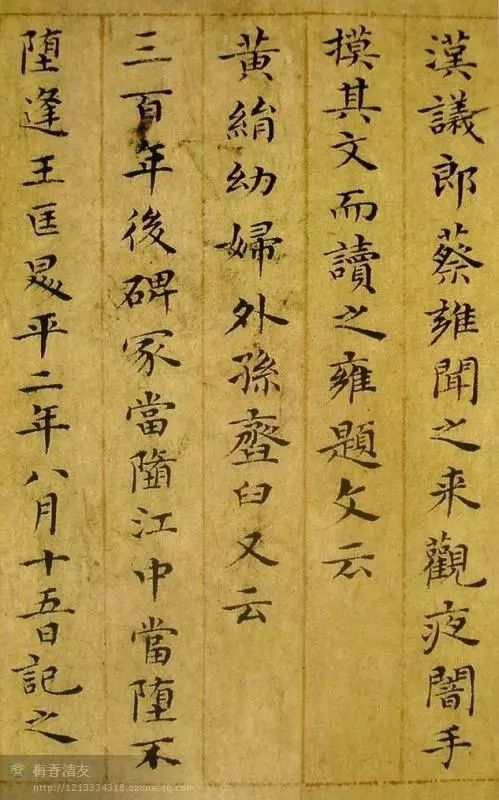 漢議郎蔡雍聞之来觀夜闇手
摸其文而讀之雍題文云
黃絹幼婦外孫韲臼又云
三百年後碑冢當隨江中當墮不
墮逢王叵昇平二年八月十五日記之
梅香清友
http://1213334318.qzone.qq.com